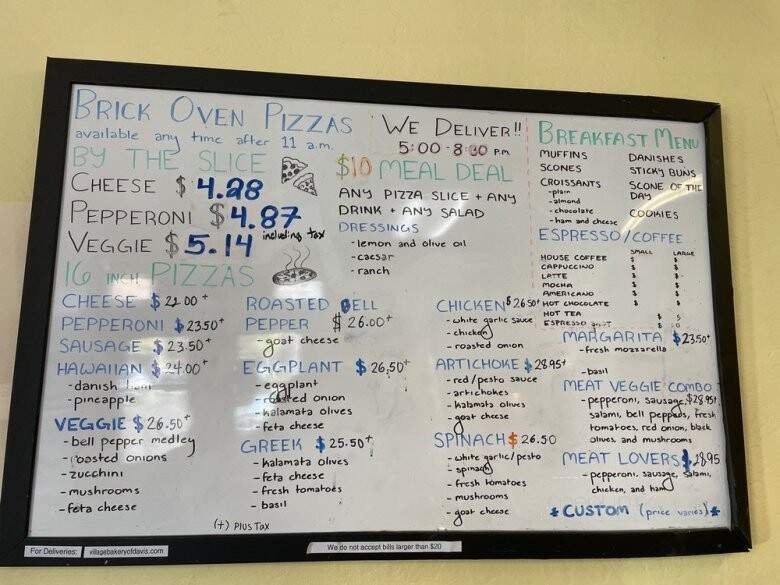 BRICK OVEN PIZZAS
available any time after 11 a.m.
BY THE SLICE
CHEESE $4.28
PEPPERONI $4.87
VEGGIE $5.14 including tax
16 INCH PIZZAS
CHEESE $22.00+
PEPPERONI $23.50+
SAUSAGE $23.50+
HAWAIIAN $24.00+
-danish
-pineapple
VEGGIE $26.50+
-bell pepper medley
-roasted onions
-zucchini
-mushrooms
-feta cheese
ROASTED BELL
PEPPER $26.00+
-goat cheese
EGGPLANT $26.50+
-eggplant
-roasted onion
-kalamata olives
-feta cheese
GREEK $25.50+
-kalamata olives
-feta cheese
-fresh tomatoes
-basil
(+) PLUS TAX
WE DELIVER!!
5:00-8:30 P.M.
$10 MEAL DEAL
ANY PIZZA SLICE + ANY
DRINK + ANY SALAD
DRESSINGS
-lemon and olive oil
-caesar
-ranch
CHICKEN $26.50+
-white garlic sauce
-chicken
-roasted onion
ARTICHOKE $28.95+
-red/pesto sauce
-artichokes
-kalamata olives
-goat cheese
SPINACH $26.50
-white garlic/pesto
-spinach
-fresh tomatoes
-mushrooms
-goat cheese
BREAKFAST MENU
MUFFINS
SCONES
CROISSANTS
-plain
-almond
-chocolate
-ham and cheese
DANISHES
STICKY BUNS
SCONE OF THE
DAY
COOKIES
ESPRESSO/COFFEE
SMALL LARGE
HOUSE COFFEE $ $
CAPPUCCINO $ $
LATTE $ $
MOCHA $ $
AMERICANO $ $
HOT CHOCOLATE $ $
HOT TEA $
ESPRESSO $
MARGARITA $23.50+
-fresh mozzarella
-basil
MEAT VEGGIE COMBO
-pepperoni, sausage, $28.95+
salami, bell peppers, fresh
tomatoes, red onion, black
olives, and mushrooms
MEAT LOVERS $28.95
-pepperoni, sausage, salami,
chicken, and ham
*CUSTOM (price varies)*
For Deliveries: villagebakeryofdavis.com
We do not accept bills larger than $20